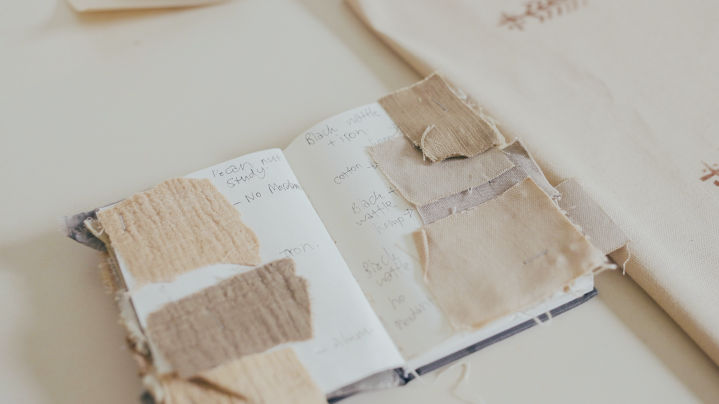 Pecan nut
study
- No Mordant
Iron.
- Alum
Black wattle
+ iron
cotton →
Black +
wattle
hemp →
Black
wattle
no
Mordant